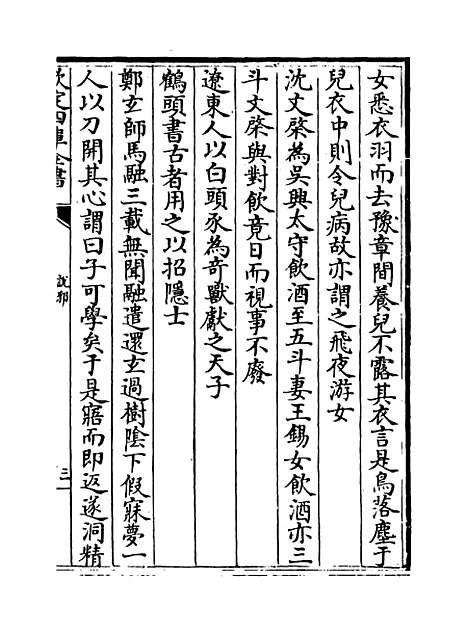 女悉衣羽而去豫章間養兒不露其衣言是鳥落塵于
兒衣中則令兒病故亦謂之飛夜游女
沈文榮為吳興太守飲酒至五斗妻王錫女飲酒亦三
斗文榮與對飲竟日而視事不廢
遼東人以白頭豕為奇獸獻之天子
鶴頭書古者用之以招隱士
鄭玄師馬融三載無聞融遣還玄過樹陰下假寐夢一
人以刀開其心謂曰子可學矣于是寤而即返遂洞精
欽定四庫全書
說郛